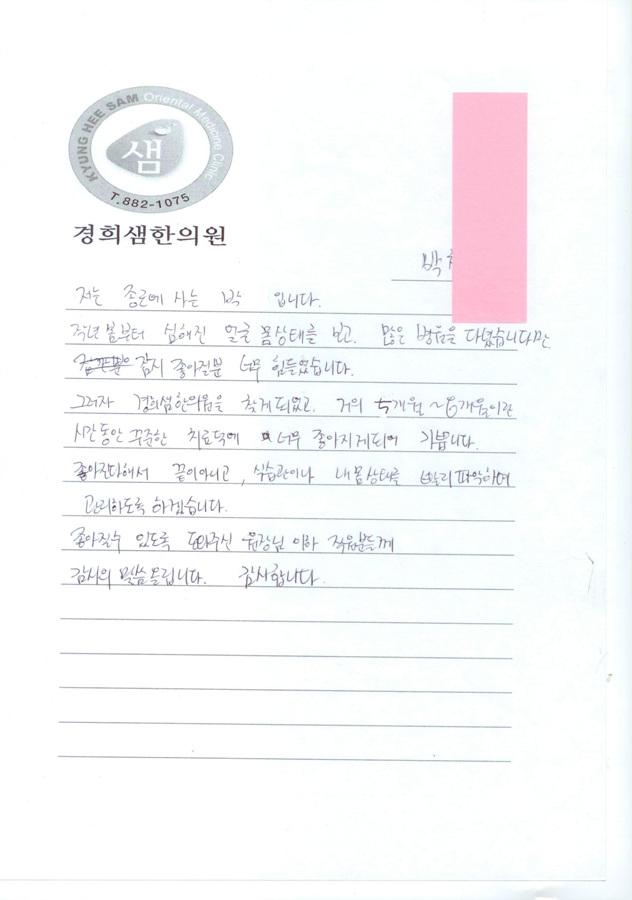 KYUNG HEE SAM Oriental Medicine Clinic
샘
T.882-1075
경희샘한의원
박
저는 종로에 사는 박 입니다.
작년 봄부터 심해진 얼굴 몸상태를 보고, 많은 병원을 다녔습니다만
잠시 좋아질뿐 너무 힘들었습니다.
그러자 경희샘한의원을 찾게되었고, 거의 5개월 ~6개월이란
시간동안 꾸준한 치료덕에 너무 좋아지게되어 기쁩니다.
좋아진다해서 끝이아니고, 식습관이나 내몸상태를 빨리 파악하며
관리하도록 하겠습니다.
좋아질수 있도록 도와주신 원장님 이하 직원분들께
감사의 말씀올립니다. 감사합니다.